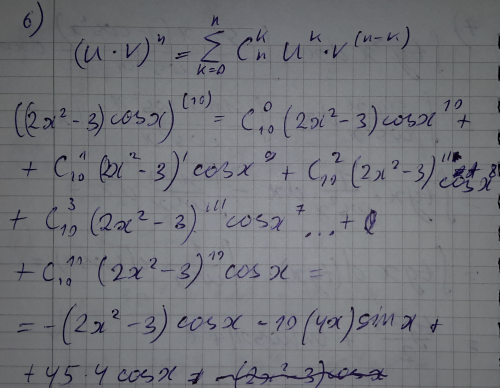 6)
(u · v)ⁿ = Σ (k=0, n) Cₙᵏ uᵏ · v⁽ⁿ⁻ᵏ⁾
((2x² - 3) cosx)⁽¹⁰⁾ = C₁₀⁰ (2x² - 3) cosx¹⁰ +
+ C₁₀¹ (2x² - 3)' cosx⁹ + C₁₀² (2x² - 3)'' cosx⁸
+ C₁₀³ (2x² - 3)''' cosx⁷ ... +
+ C₁₀¹⁰ (2x² - 3)¹⁰ cosx =
= - (2x² - 3) cosx - 10 (4x) sinx +
+ 45 · 4 cosx + - (2x² - 3) cosx